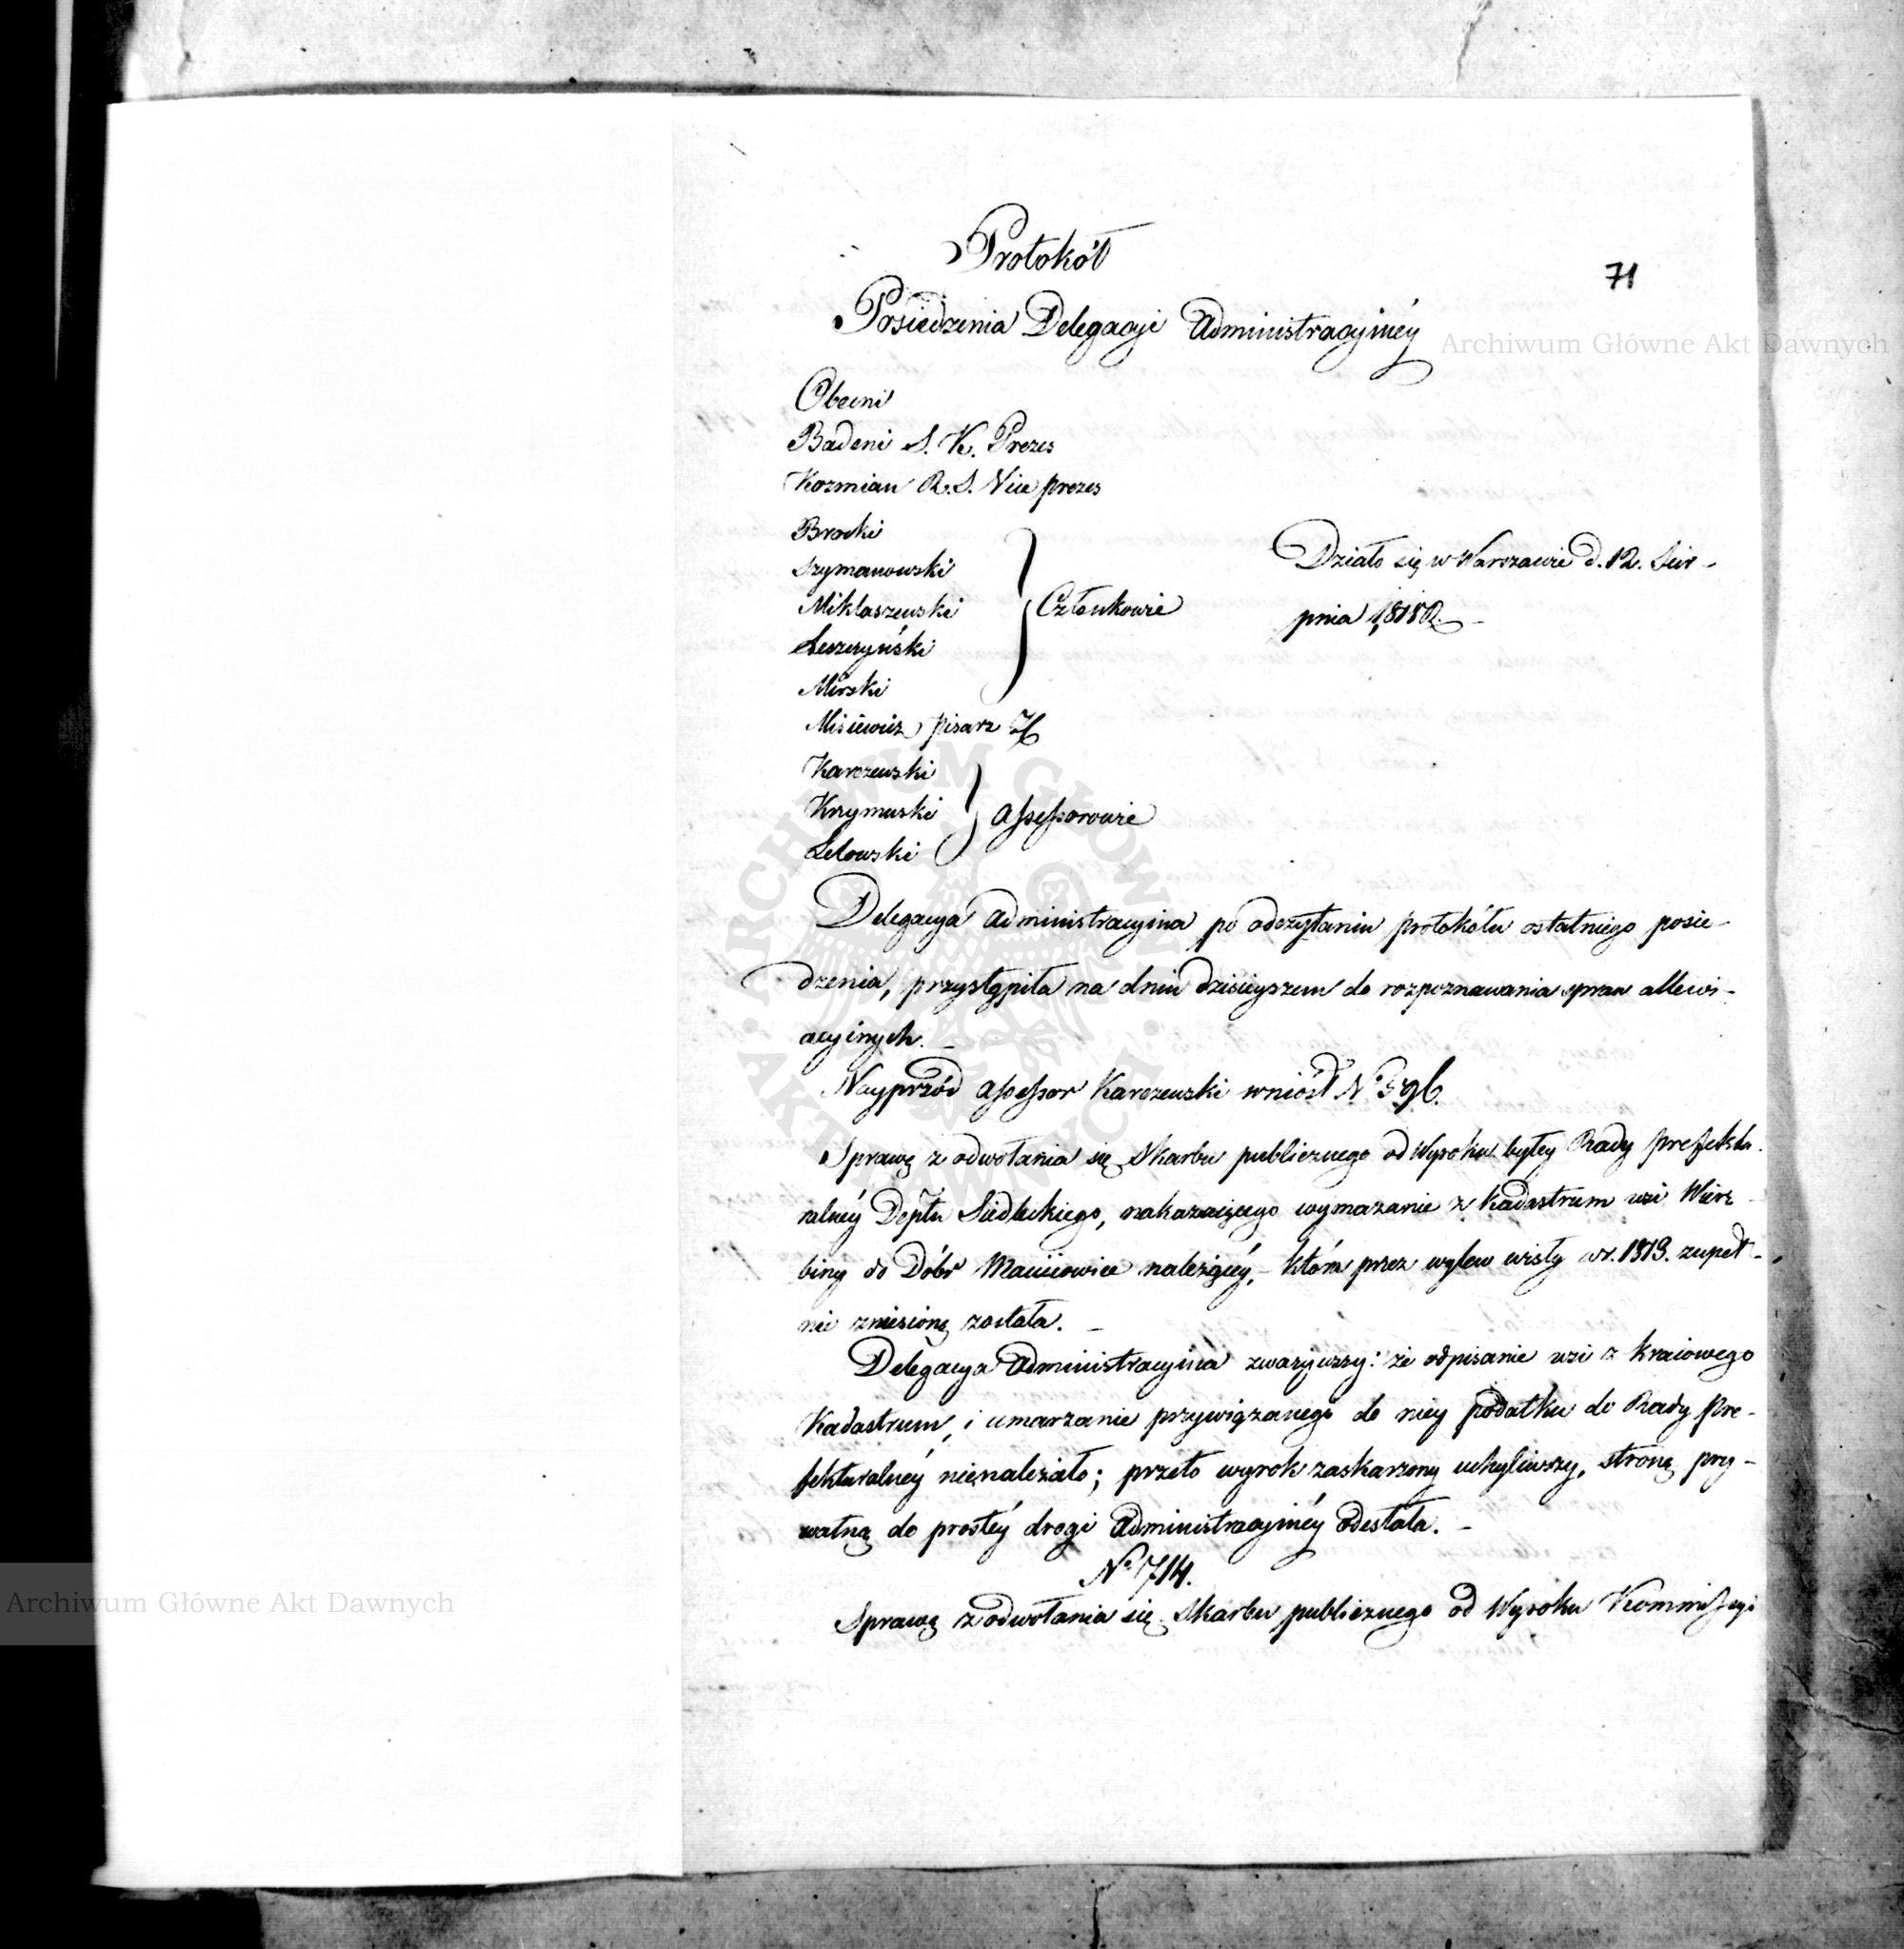 Protokół
71
Posiedzenia Delegacyi Administracyinéy
Archiwum Główne Akt Dawnych
Obecni
Badeni S. K. Prezes
Kozmian R. S. Vice prezes
Brocki
Szymanowski
Miklaszewski
Leszczyński
Mirski
Członkowie
Działo się w Warszawie d. 12. Sier-
pnia 1818 R.
Misiewicz pisarz
Karczewski
Krzymuski
Lelowski
Assessorowie
Delegacya Administracyina po odczytaniu protokółu ostatniego posie-
dzenia, przystąpiła na dniu dzisieyszem do rozpoznawania spraw allewi-
acyinych. -
Nayprzód Assessor Karczewski wniósł No 596.
Sprawę z odwołania się Skarbu publicznego od Wyroku byłey Rady prefektu-
ralnéy Deptu Siedleckiego, nakazuiącego wymazanie z Kadastrum wsi Wierz-
biny do Dóbr Maciiowice należącéy, - która przez wylew wisły w r. 1813. zupeł-
nie zniesioną została. -
Delegacya Administracyina zważywszy: że odpisanie wsi z kraiowego
Kadastrum, i umarzanie przywiązanego do niey podatku do Rady Pre-
fekturalnéy nienależało; przeto wyrok zaskarżony uchyliwszy, stronę pry-
watną do prostéy drogi Administracyinéy odesłała. -
No 714.
Sprawę z odwołania się Skarbu publicznego od Wyroku Kommissyi
Archiwum Główne Akt Dawnych
ARCHIWUM GŁÓWNE AKT DAWNYCH